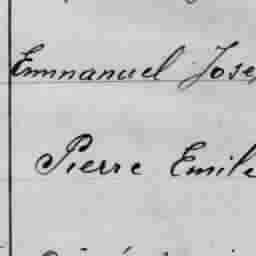 Emmanuel Jose
Pierre Emile